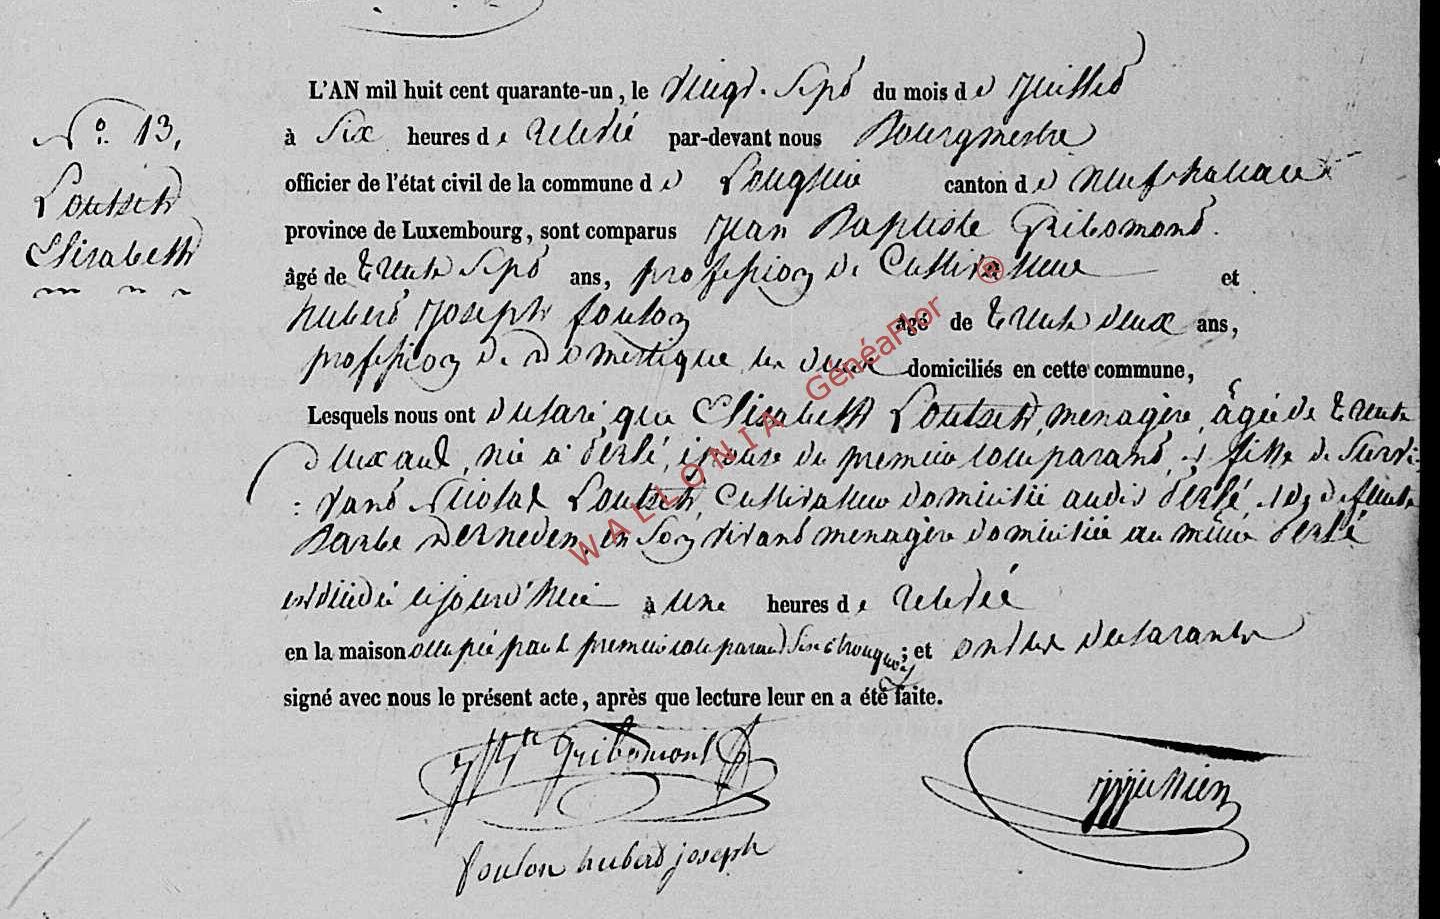 N.° 13,
Loutsch
Elisabeth
L'AN mil huit cent quarante-un, le vingt-sept du mois de Juillet
à Six heures de relevée par-devant nous Bourgmestre
officier de l'état civil de la commune de Longlier canton de Neufchateau
province de Luxembourg, sont comparus Jean Baptiste Gribomont.
âgé de trente Sept ans, profession de Cultivateur et
hubert Joseph foulon âgé de trente deux ans,
profession de domestique les deux domiciliés en cette commune,
Lesquels nous ont declaré, que Elisabeth Loutsch, menagère, âgée de trente
deux ans, née à , épouse du premier comparant, et fille de Survi-
:vant Nicolas Loutsch, Cultivateur domicilié audit , et de defunte
Barbe , en Son vivant menagère domiciliée au même
est décédée cejourd'hui à une heures de relevée
en la maison occupée par le premier comparant ; et ont les declarants
signé avec nous le présent acte, après que lecture leur en a été faite.
Gribomont
foulon hubert joseph
WALLONIA GénéaFlor ®